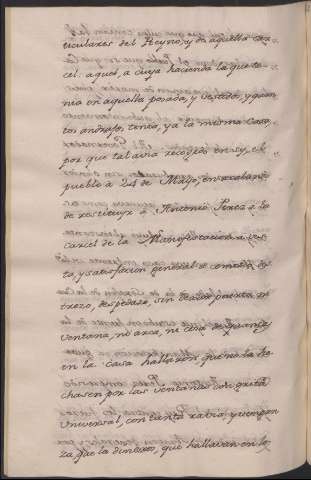 ticulares del Reyno, y de aquella car-
cel: aquel, a cuya hacienda la que te-
nia en aquella posada, y vestidos, y quan-
tos andrajos tenia, ya la misma Casa,
por que tal avia recogido en sy, el
pueblo à 24 de Mayo, en acabando
de restituyr à Antonio Perez à la
carcel de la Manifestacion à vis-
ta, y satisfacion general se cometió des-
trozo, despedazo, sin dexar puerta, ni
ventana, ni arca, ni cosa de quantas
en la casa hallaron, que no la he-
chasen por las ventanas con grita
Universal, con tanta rabia, y vengan
za, que la dineros, que hallavan en lo